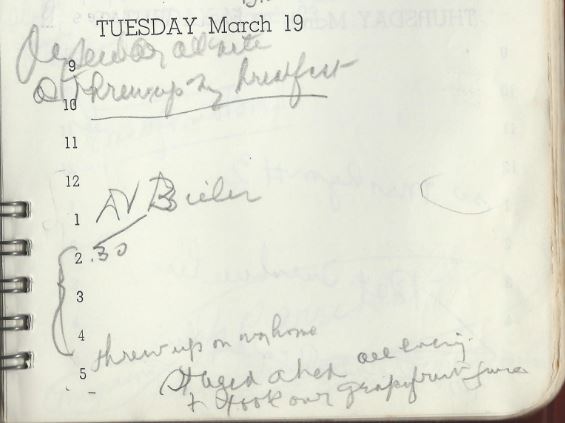 TUESDAY March 19
all nite
9
threw up my breakfast
10
11
12
Bieler
1
2.30
3
4
threw up on way home
5
Stayed abed all evening
+ took our grapefruit juice